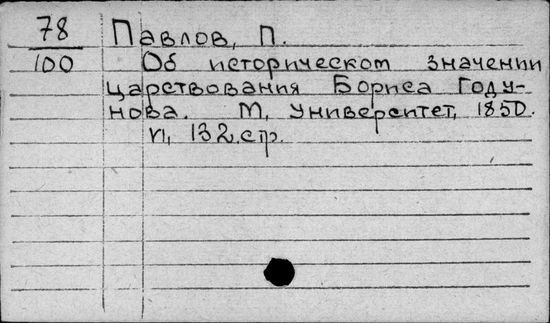 78
100
Павлов, П.
Об историческом значении
царствования Бориса Году-
нова. М, Университет, 1850.
VI, 132 стр.